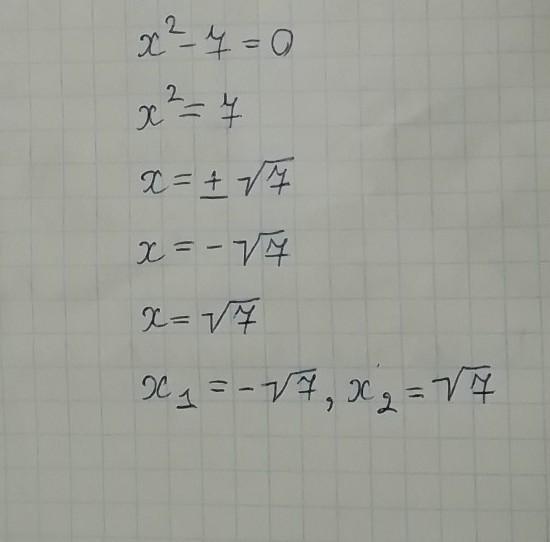 x² - 7 = 0
x² = 7
x = ± √7
x = - √7
x = √7
x₁ = - √7, x₂ = √7